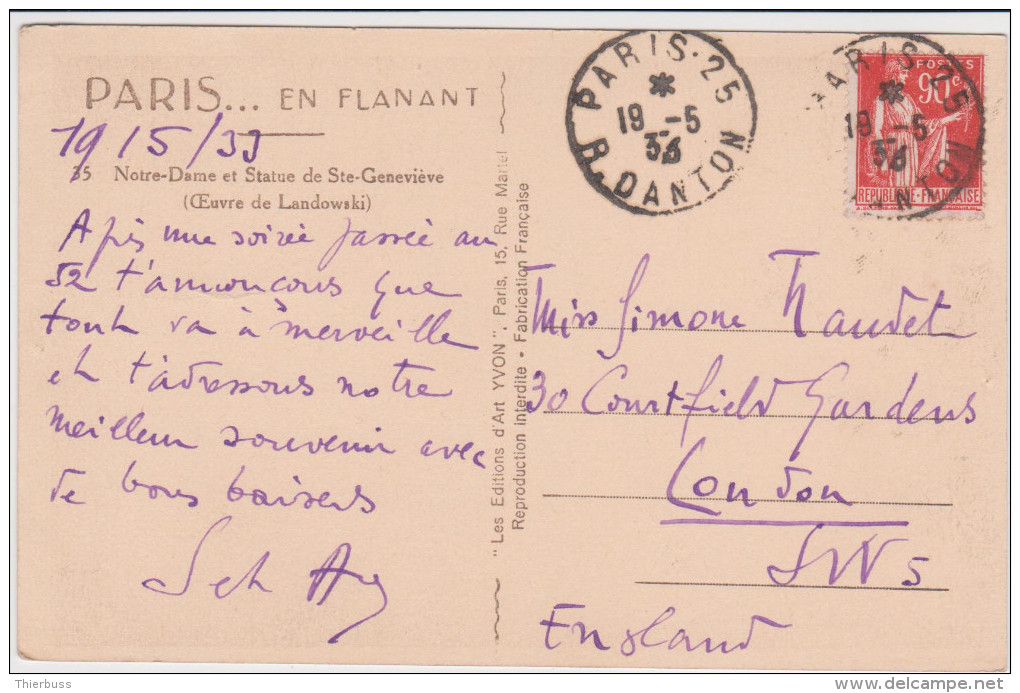 PARIS... EN FLANANT
19/5/33
35 Notre-Dame et Statue de Ste-Geneviève
(Œuvre de Landowski)
Après une soirée passée au
52 t'annonçons que
tout va à merveille
et t'adressons notre
meilleur souvenir avec
de bons baisers
"Les Editions d'Art YVON", Paris, 15, Rue Martel
Reproduction interdite - Fabrication Française
PARIS·25
19 -5
R. DANTON
POSTES
90c
REPUBLIQUE·FRANÇAISE
PARIS·25
19 -5
Miss Simone Naudet
30 Courtfield Gardens
London
SW5
England
Thierbuss
delcampe.net